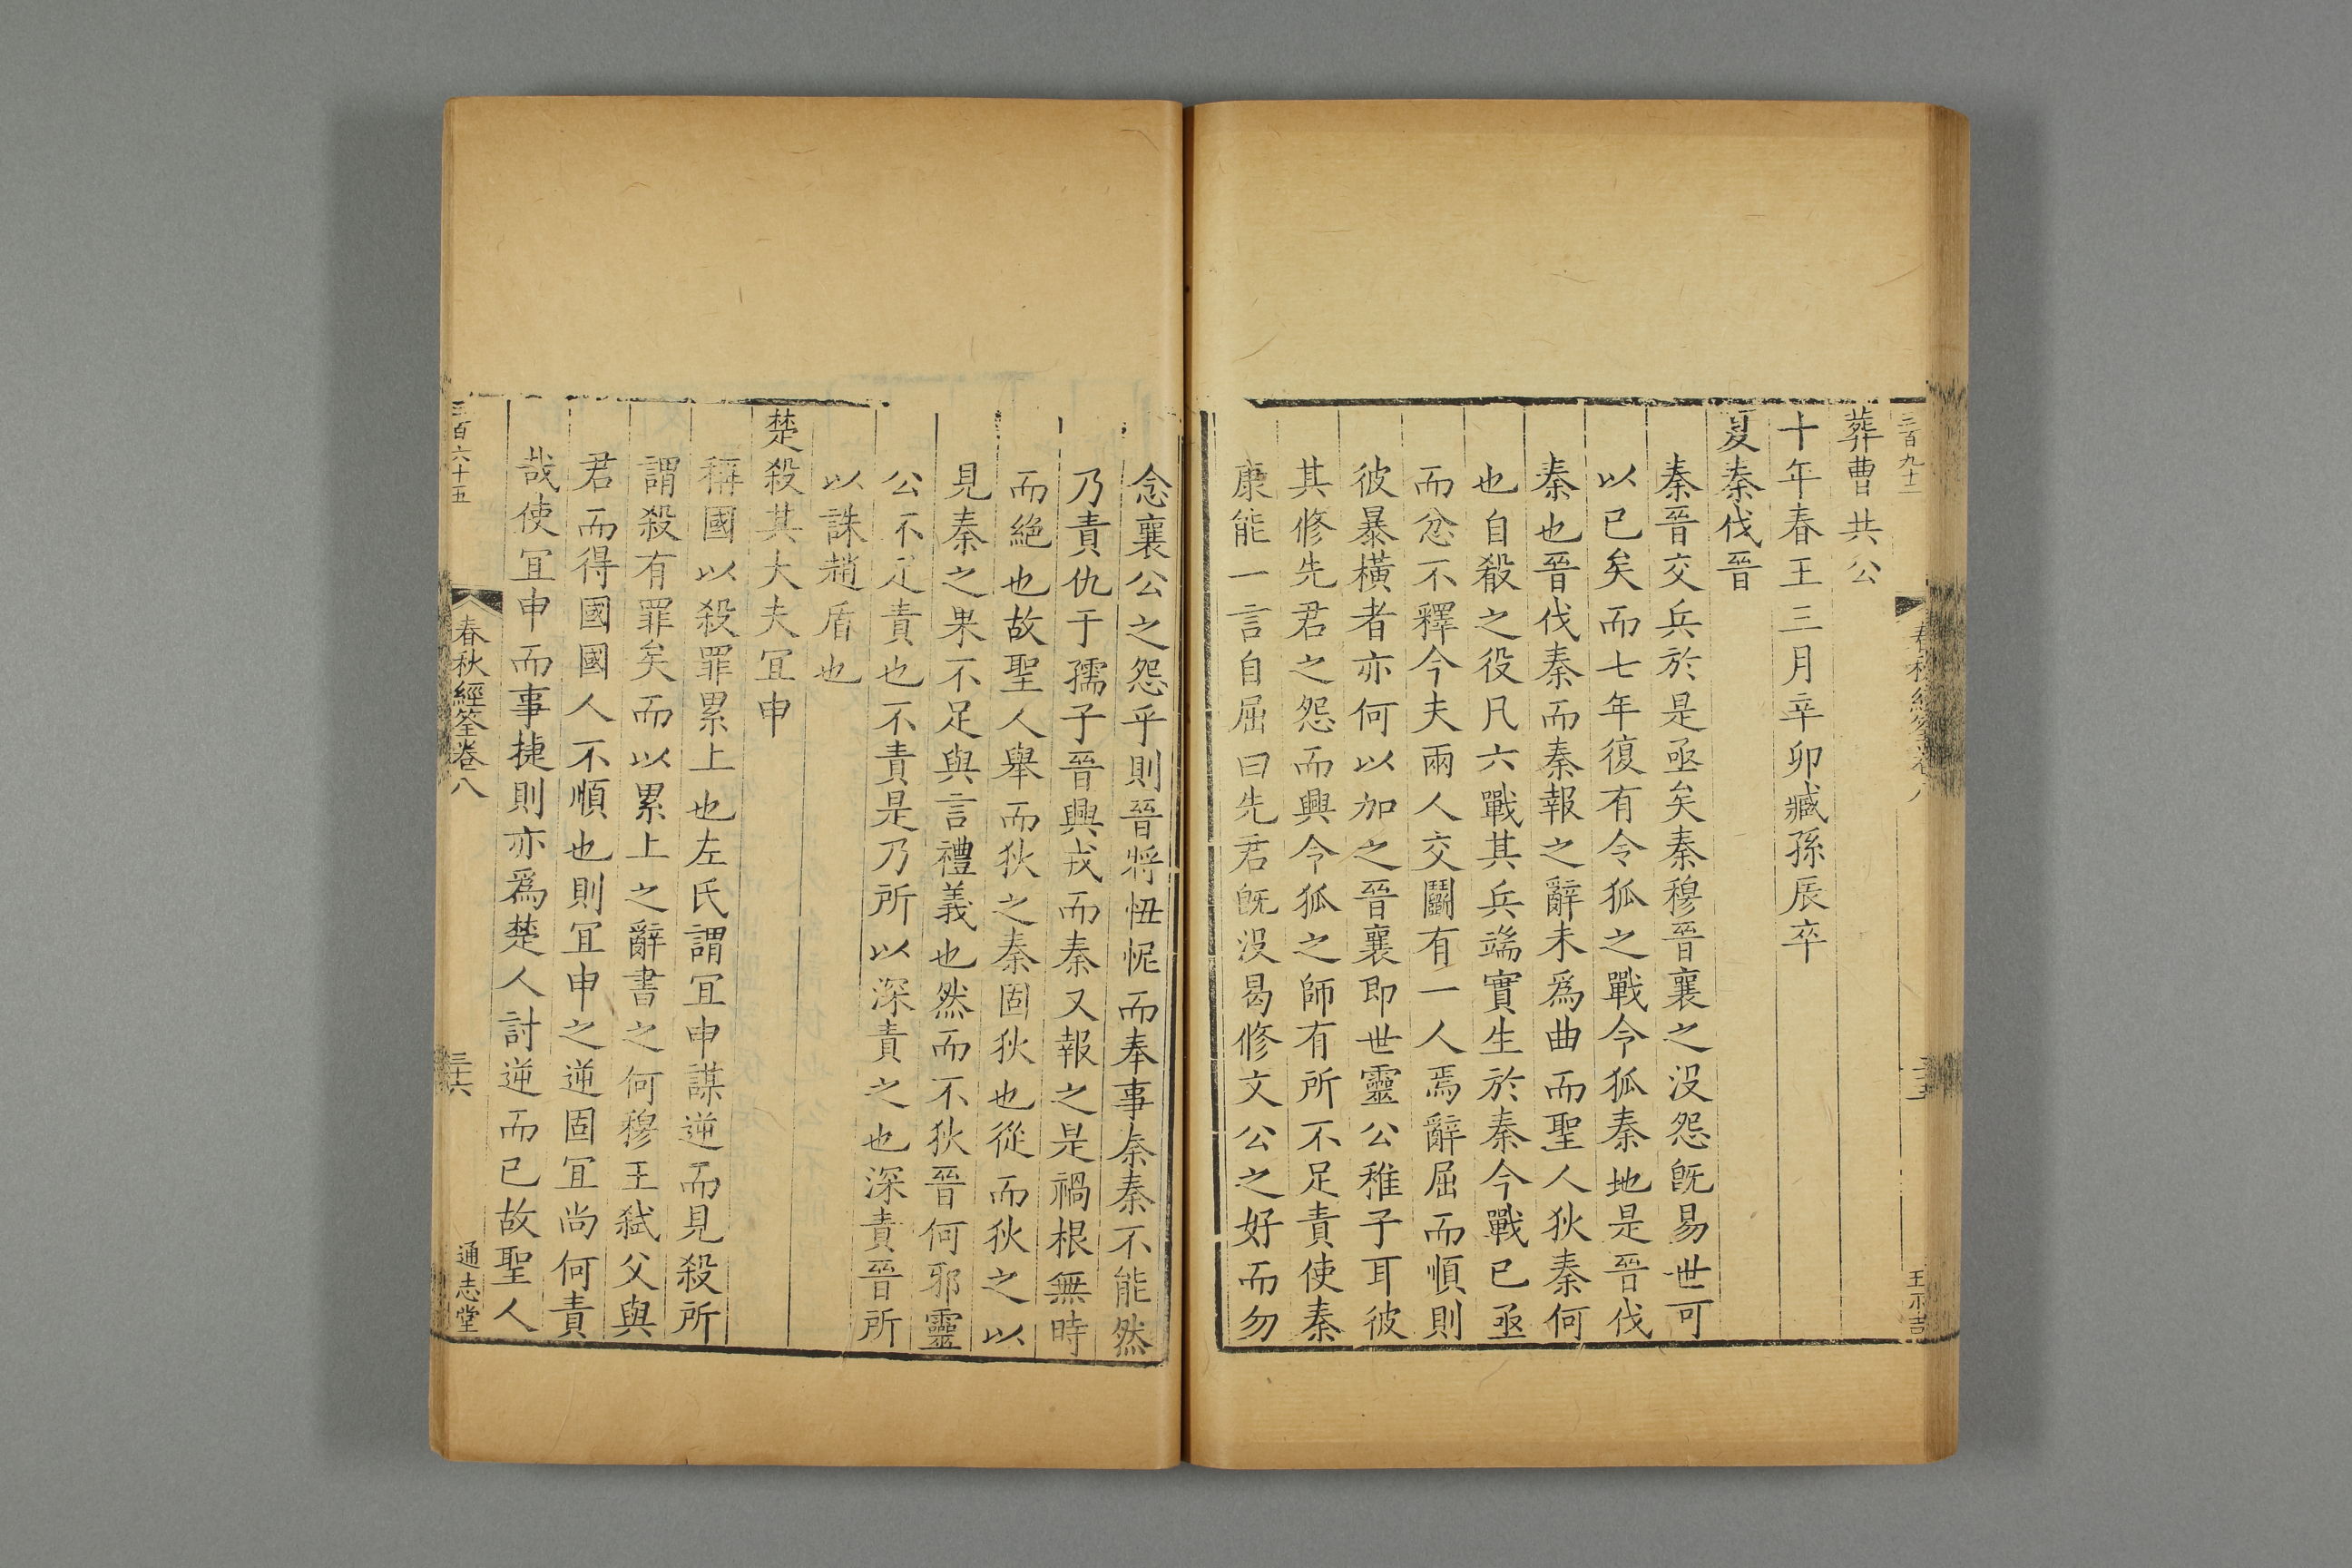 三百九十二
春秋經筌卷八
三十五
葬曹共公
十年春王三月辛卯臧孫辰卒
夏秦伐晉
秦晉交兵於是亟矣秦穆晉襄之沒怨旣易世可
以已矣而七年復有令狐之戰令狐秦地是晉伐
秦也晉伐秦而秦報之辭未爲曲而聖人狄秦何
也自殽之役凡六戰其兵端實生於秦今戰已亟
而忿不釋今夫兩人交鬬有一人焉辭屈而順則
彼暴橫者亦何以加之晉襄即世靈公稚子耳彼
其修先君之怨而興令狐之師有所不足責使秦
康能一言自屈曰先君旣沒曷修文公之好而勿
念襄公之怨乎則晉將忸怩而奉事秦秦不能然
乃責仇于孺子晉興戎而秦又報之是禍根無時
而絕也故聖人舉而狄之秦固狄也從而狄之以
見秦之果不足與言禮義也然而不狄晉何邪靈
公不足責也不責是乃所以深責之也深責晉所
以誅趙盾也
楚殺其大夫冝申
稱國以殺罪累上也左氏謂冝申謀逆而見殺所
謂殺有罪矣而以累上之辭書之何穆王弑父與
君而得國國人不順也則冝申之逆固冝尚何責
哉使冝申而事捷則亦爲楚人討逆而已故聖人
三百六十五
春秋經筌卷八
三十六
通志堂